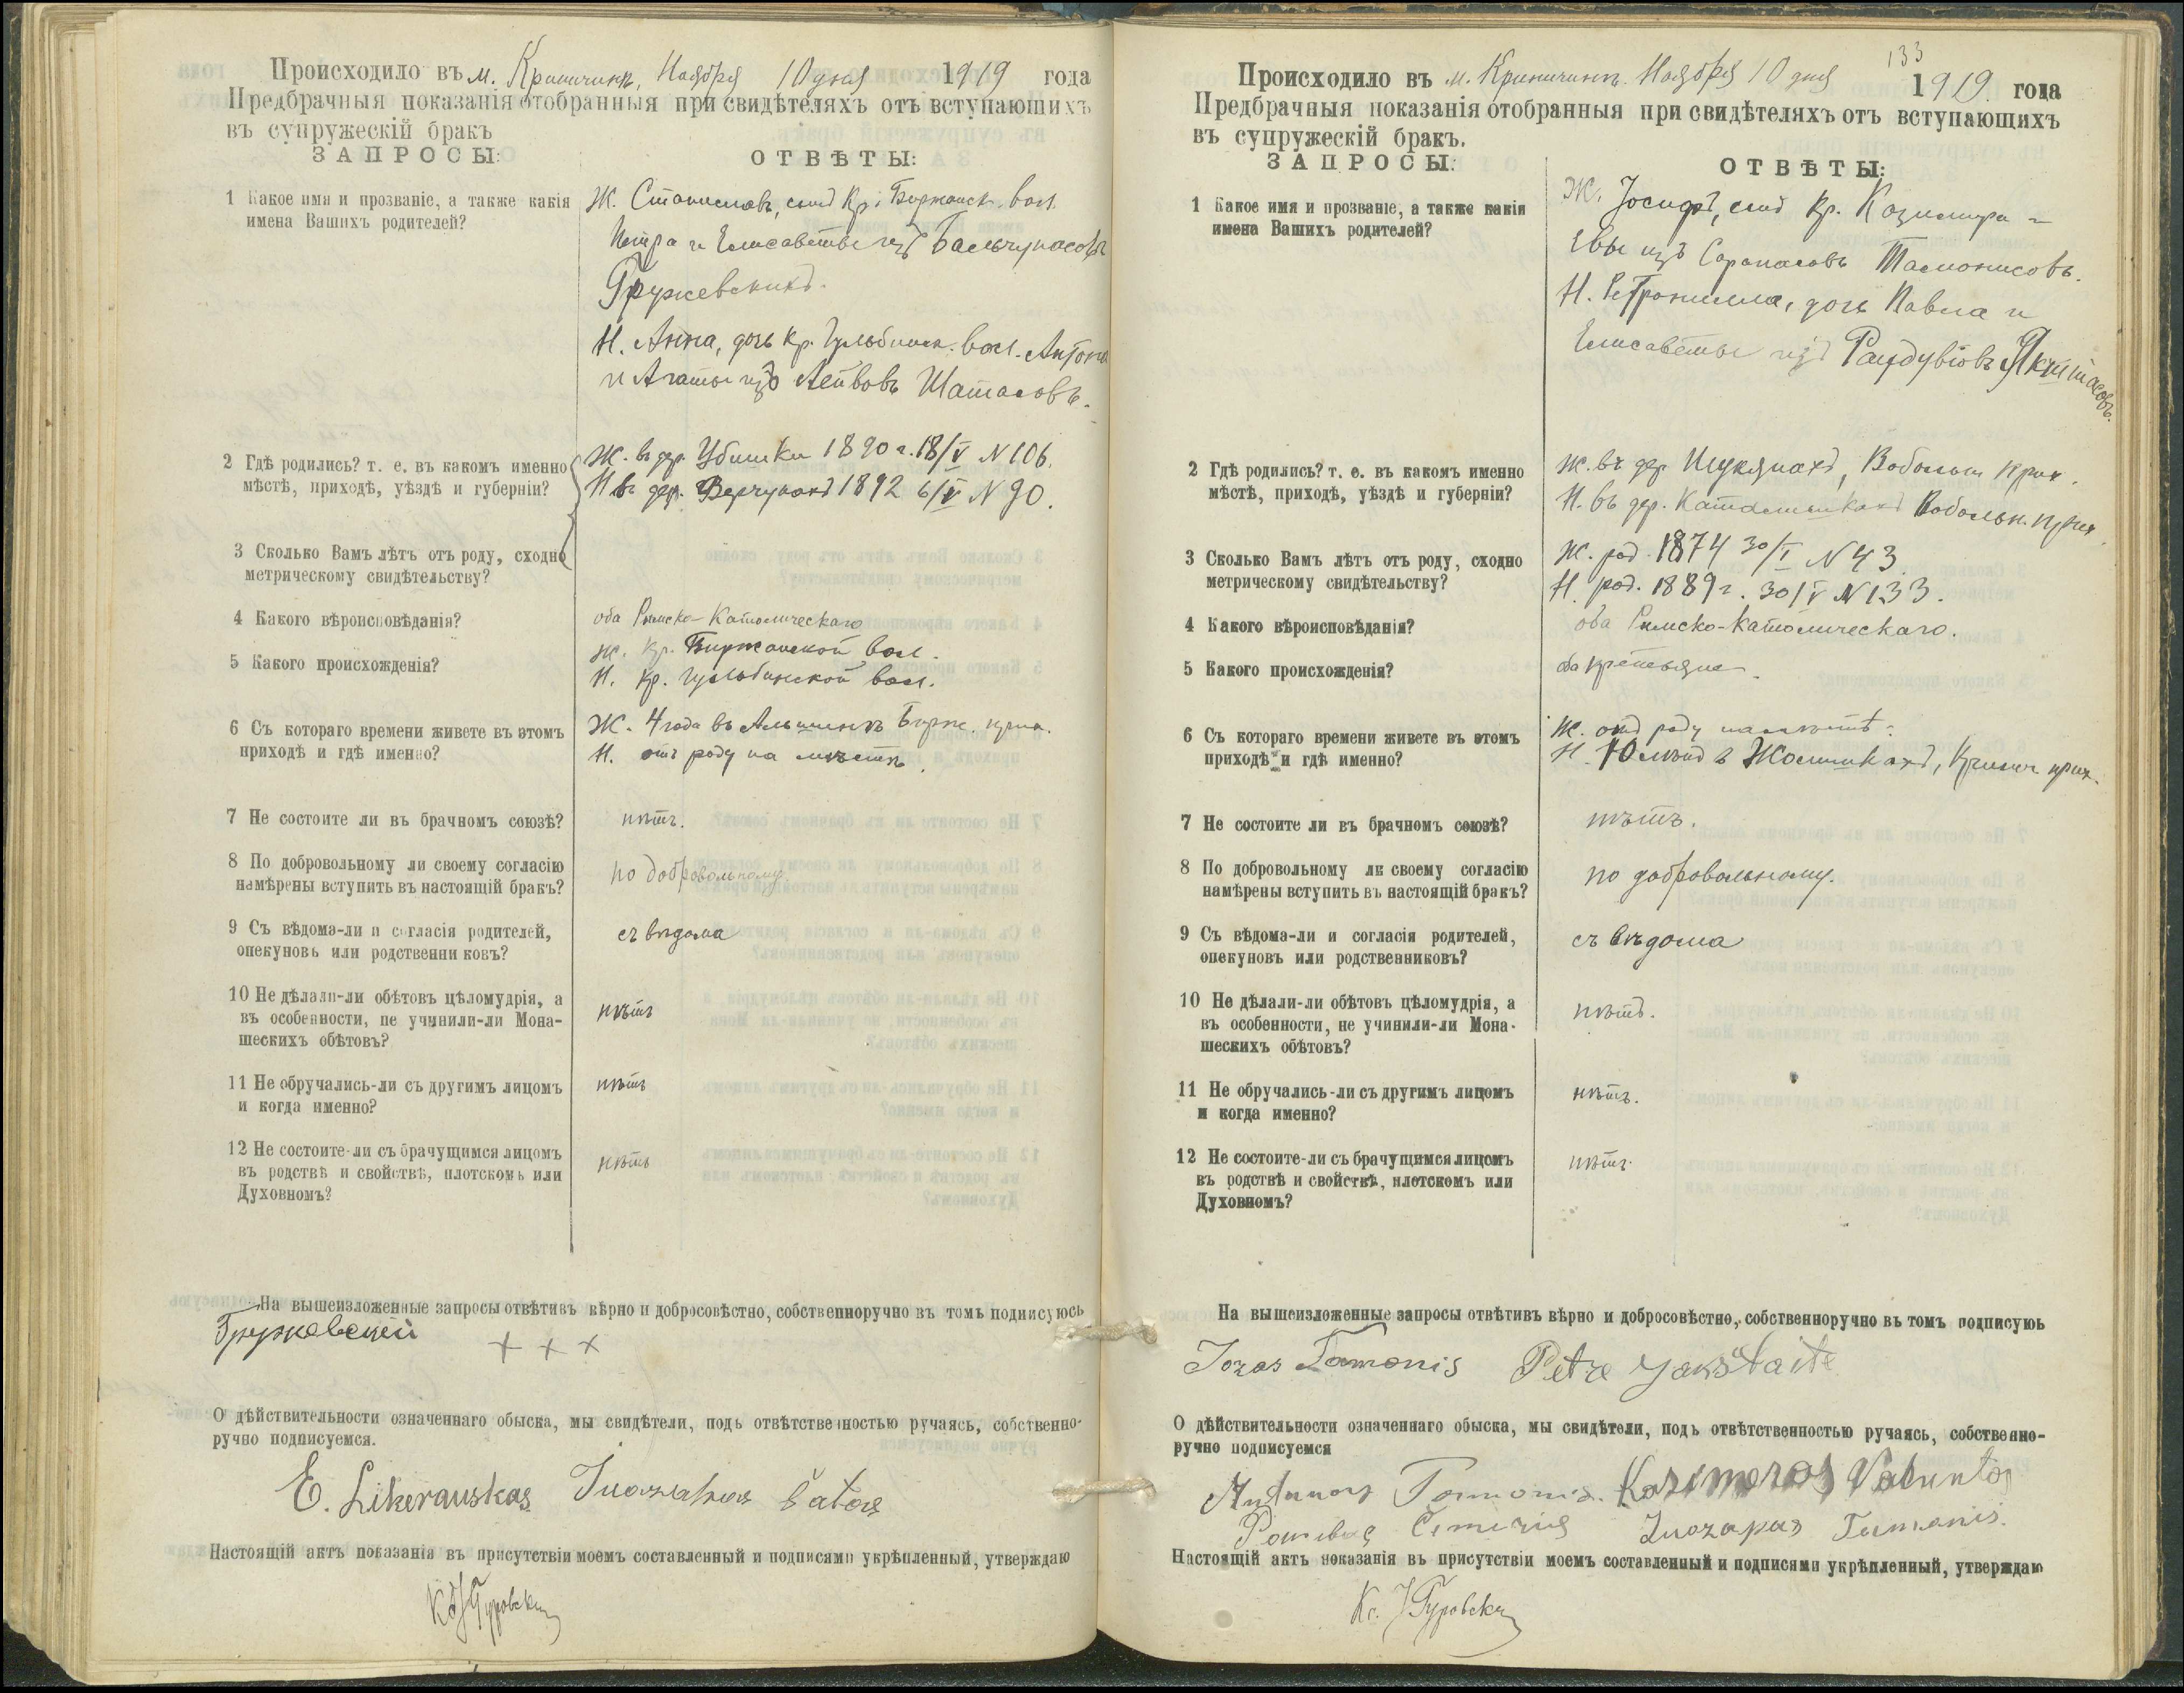 Происходило въ м. Криничинъ, Ноября 10 дня 1919 года
Предбрачныя показанія отобранныя при свидѣтеляхъ отъ вступающихъ
въ супружескій бракъ
ЗАПРОСЫ: ОТВѢТЫ:
1 Какое имя и прозваніе, а также какія
имена Вашихъ родителей?
Ж. Станиславъ, сынъ кр. Биржанск. вол.
Петра и Елисаветы изъ Бальчунасовъ
Гружевскихъ.
Н. Анна, дочь кр. Гульбинск. вол. Антона
и Агаты изъ Лейвовъ Шатасовъ.
2 Гдѣ родились? т. е. въ какомъ именно
мѣстѣ, приходѣ, уѣздѣ и губерніи?
Ж. въ дер. Убишки 1890 г. 18/V N 106.
Н въ дер. 1892 6/V N 90.
3 Сколько Вамъ лѣтъ отъ роду, сходно
метрическому свидѣтельству?
4 Какого вѣроисповѣданія?
оба Римско-Католическаго
5 Какого происхожденія?
Ж. кр. Биржанской вол.
Н. кр. Гульбинской вол.
6 Съ котораго времени живете въ этомъ
приходѣ и гдѣ именно?
Ж. 4 года въ Бирж. прих.
Н. отъ роду на мѣстѣ.
7 Не состоите ли въ брачномъ союзѣ?
нѣтъ.
8 По добровольному ли своему согласію
намѣрены вступить въ настоящій бракъ?
по добровольному
9 Съ вѣдома-ли и согласія родителей,
опекуновъ или родственни ковъ?
съ вѣдома
10 Не дѣлали-ли обѣтовъ цѣломудрія, а
въ особенности, не учинили-ли Мона-
шескихъ обѣтовъ?
нѣтъ
11 Не обручались-ли съ другимъ лицомъ
и когда именно?
нѣтъ
12 Не состоите-ли съ брачущимся лицомъ
въ родствѣ и свойствѣ, плотскомъ или
Духовномъ?
нѣтъ
На вышеизложенные запросы отвѣтивъ вѣрно и добросовѣстно, собственноручно въ томъ подписуюсь
Гружевскей + + +
О дѣйствительности означеннаго обыска, мы свидѣтели, подъ отвѣтственностью ручаясь, собственно-
ручно подписуемся.
E. Likerauskas Šatas
Настоящій актъ показанія въ присутствіи моемъ составленный и подписями укрѣпленный, утверждаю
Гуровскій
133
Происходило въ м. Криничинъ. Ноября 10 дня 1919 года
Предбрачныя показанія отобранныя при свидѣтеляхъ отъ вступающихъ
въ супружескій бракъ.
ЗАПРОСЫ: ОТВѢТЫ:
1 Какое имя и прозваніе, а также какія
имена Вашихъ родителей?
Ж. Іосифъ, сынъ кр. Казимира и
Евы изъ Сарапасовъ Тамонисовъ.
Н. Петронилла, дочь Павла и
Елисаветы изъ Раудувіовъ Якштасовъ.
2 Гдѣ родились? т. е. въ какомъ именно
мѣстѣ, приходѣ, уѣздѣ и губерніи?
Ж. въ дер. Шукянахъ, Вобольн. прих.
Н. въ дер. Вобольн. прих.
3 Сколько Вамъ лѣтъ отъ роду, сходно
метрическому свидѣтельству?
Ж. род. 1874 30/I N 43.
Н. род. 1889 г. 30/V N 133.
4 Какого вѣроисповѣданія?
оба Римско-Католическаго.
5 Какого происхожденія?
оба крестьяне.
6 Съ котораго времени живете въ этомъ
приходѣ и гдѣ именно?
Ж. отъ роду на мѣстѣ.
Н. 10 лѣтъ въ Жолишкахъ, Кринич. прих.
7 Не состоите ли въ брачномъ союзѣ?
нѣтъ.
8 По добровольному ли своему согласію
намѣрены вступить въ настоящій бракъ?
по добровольному.
9 Съ вѣдома-ли и согласія родителей,
опекуновъ или родственниковъ?
съ вѣдома
10 Не дѣлали-ли обѣтовъ цѣломудрія, а
въ особенности, не учинили-ли Мона-
шескихъ обѣтовъ?
нѣтъ.
11 Не обручались-ли съ другимъ лицомъ
и когда именно?
нѣтъ.
12 Не состоите-ли съ брачущимся лицомъ
въ родствѣ и свойствѣ, плотскомъ или
Духовномъ?
нѣтъ.
На вышеизложенные запросы отвѣтивъ вѣрно и добросовѣстно, собственноручно въ томъ подписуюь
Jozas Tamonis Petre Jakštaite
О дѣйствительности означеннаго обыска, мы свидѣтели, подъ отвѣтственностью ручаясь, собственно-
ручно подписуемся
Antanas Tamonis. Kazimeras Valuntas
Juozapas Tamonis.
Настоящій актъ показанія въ присутствіи моемъ составленный и подписями укрѣпленный, утверждаю
Кс. Гуровскій